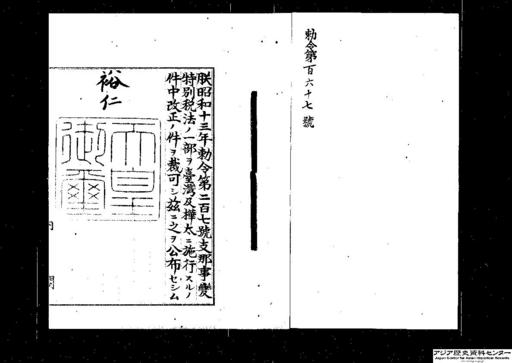 勅令第百六十七號
朕昭和十三年勅令第二百七號支那事變
特別税法ノ一部ヲ臺灣及樺太ニ施行スルノ
件中改正ノ件ヲ裁可シ茲ニ之ヲ公布セシム
裕仁
天皇
御璽
内閣
アジア歴史資料センター
Japan Center for Asian Historical Records